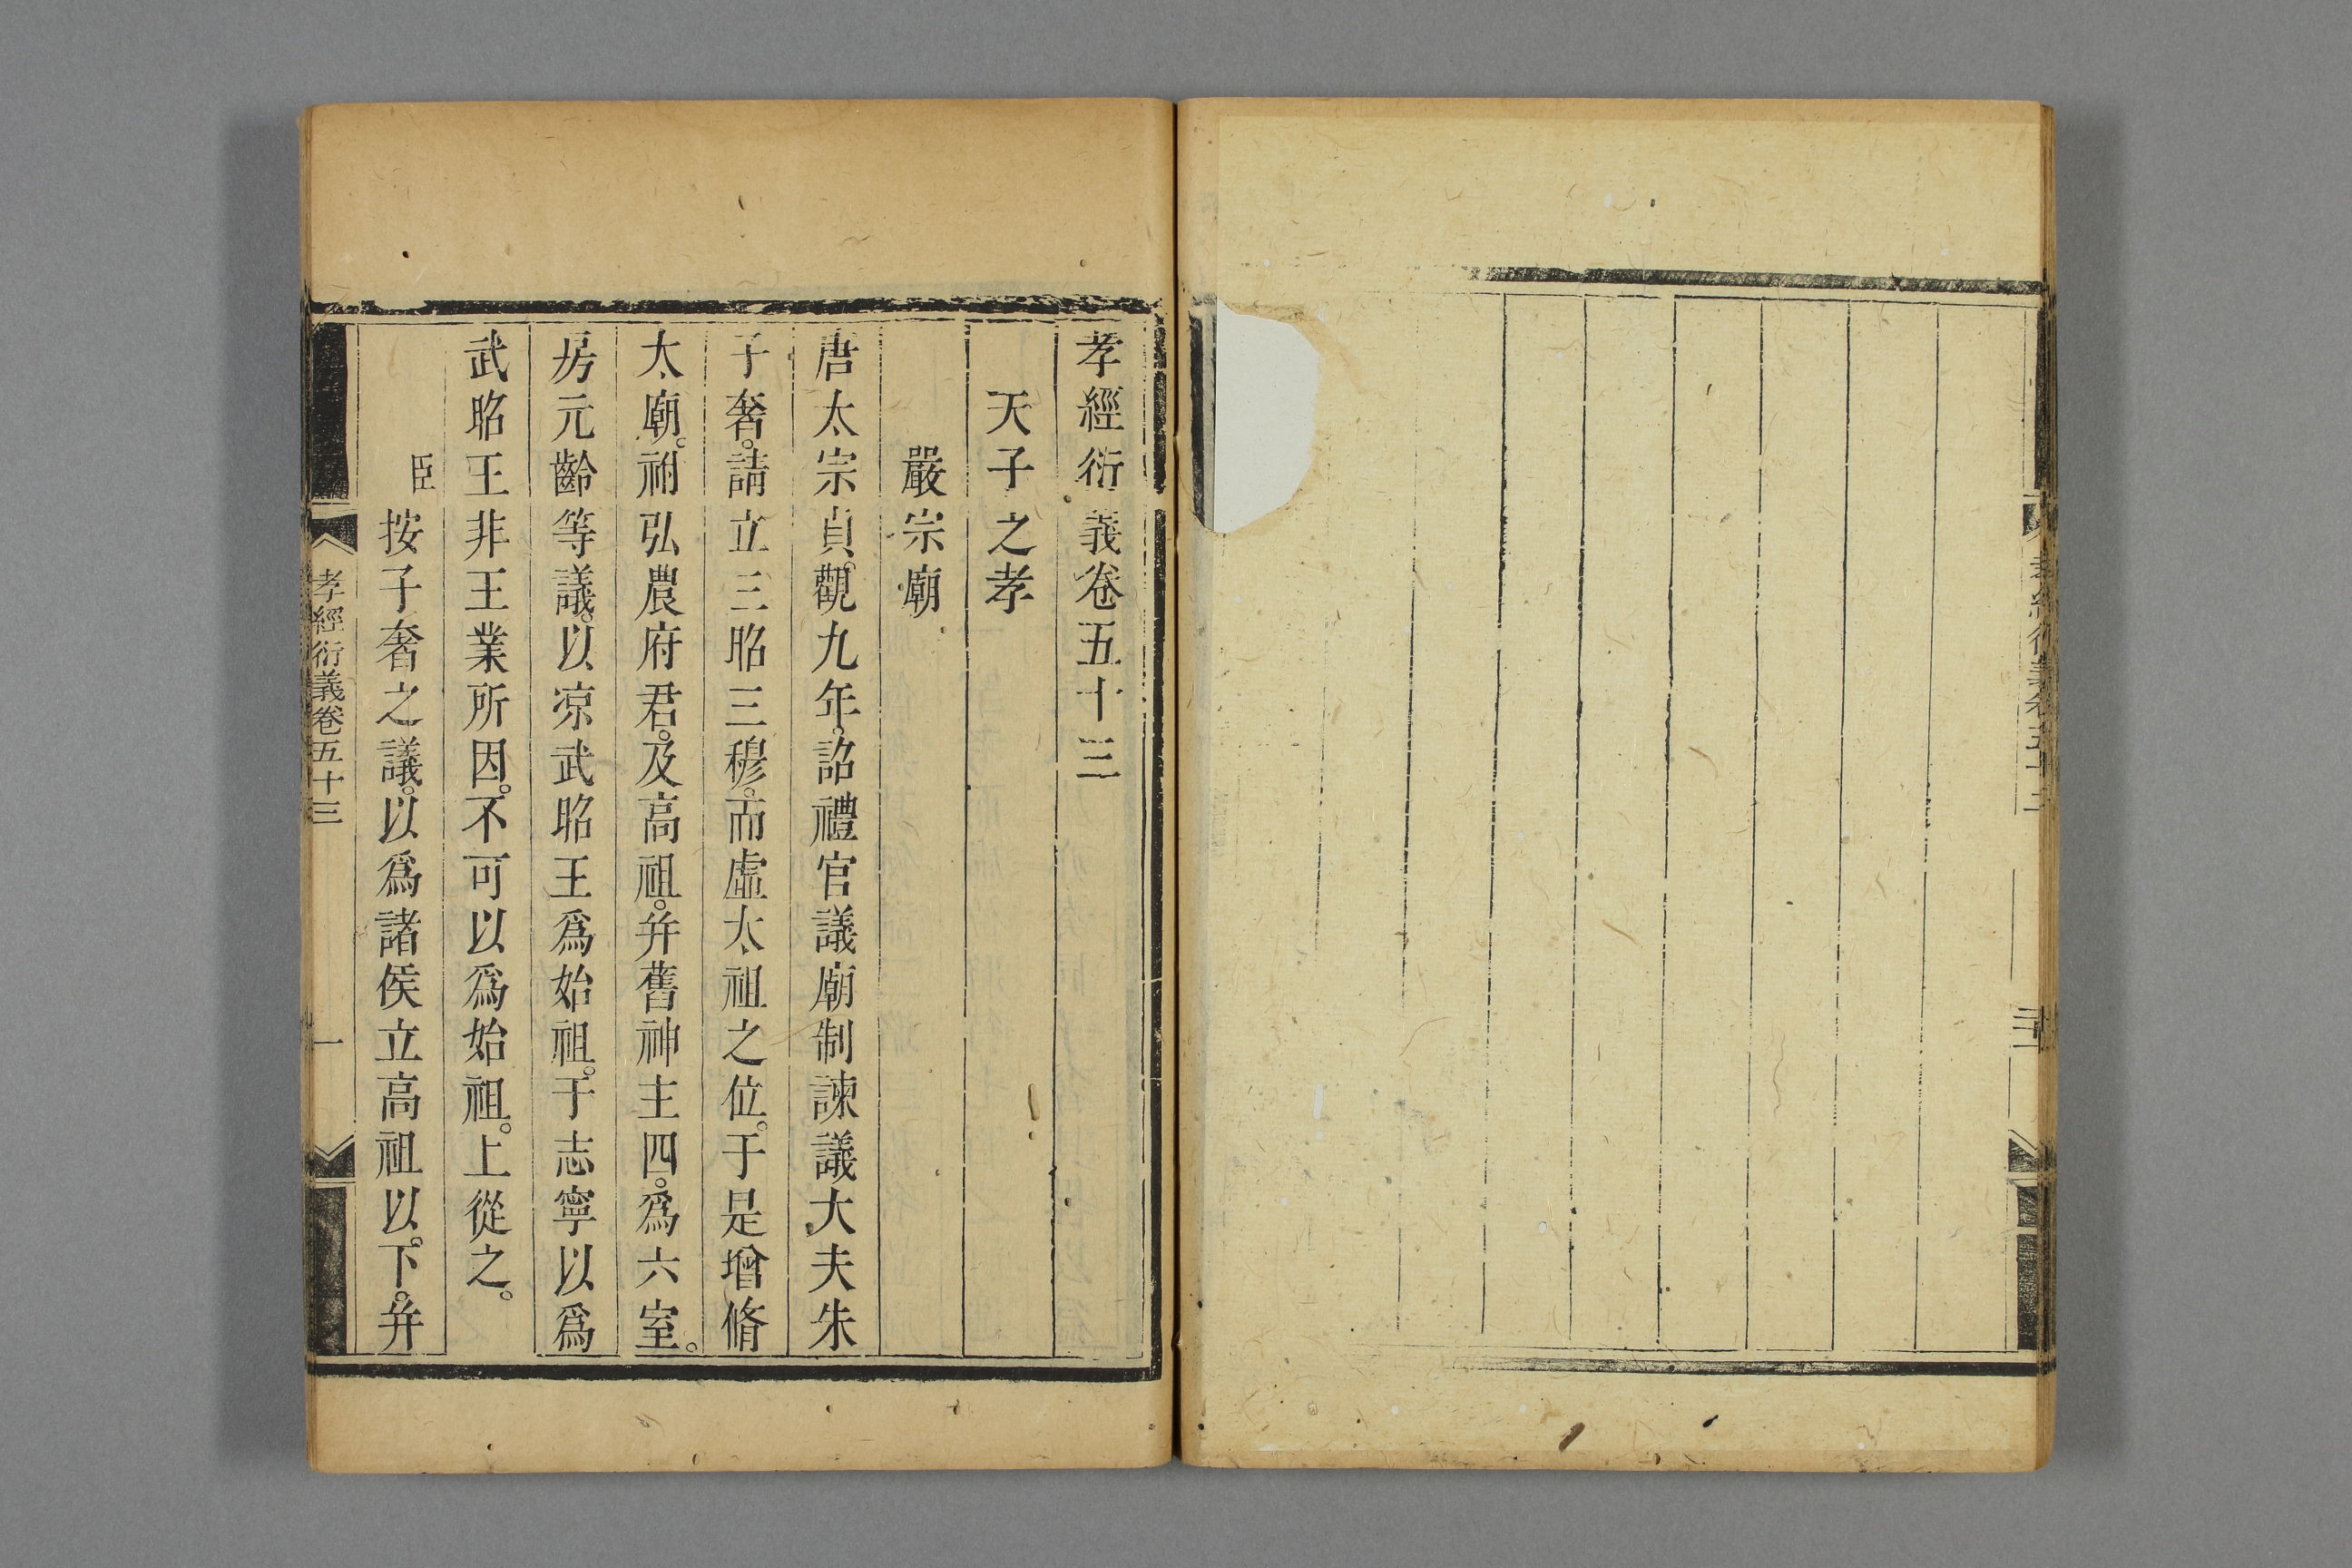 孝經衍義卷五十三
天子之孝
嚴宗廟
唐太宗貞。觀九年。詔禮官議廟制諫議大夫朱
子奢。請立三昭三穆。而虛太祖之位。于是增脩
太廟。祔弘農府君。及高祖。并舊神主四。爲六室。
房元齡等議。以凉武昭王爲始祖。于志寧以爲
武昭王非王業所因。不可以爲始祖。上從之。
臣按子奢之議。以爲諸侯立高祖以。下。并
孝經衍義卷五十三
一